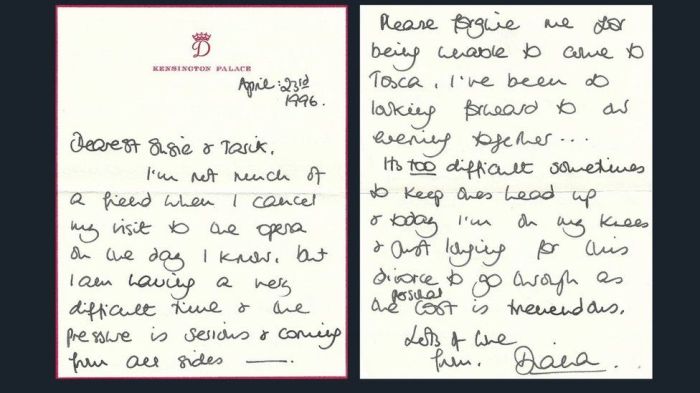 D
KENSINGTON PALACE
April: 23rd
1996.
Dearest Susie & Tarik.
I'm not much of
a friend when I cancel
my visit to the opera
on the day I know. but
I am having a very
difficult time & the
pressure is serious & coming
from all sides —.
Please forgive me for
being unable to come to
Tosca. I've been so
looking forward to our
evening together...
Its too difficult sometimes
to keep ones head up
& today I'm on my knees
& just longing for this
divorce to go through as
the personal cost is tremendous.
Lots of love
from. Diana.